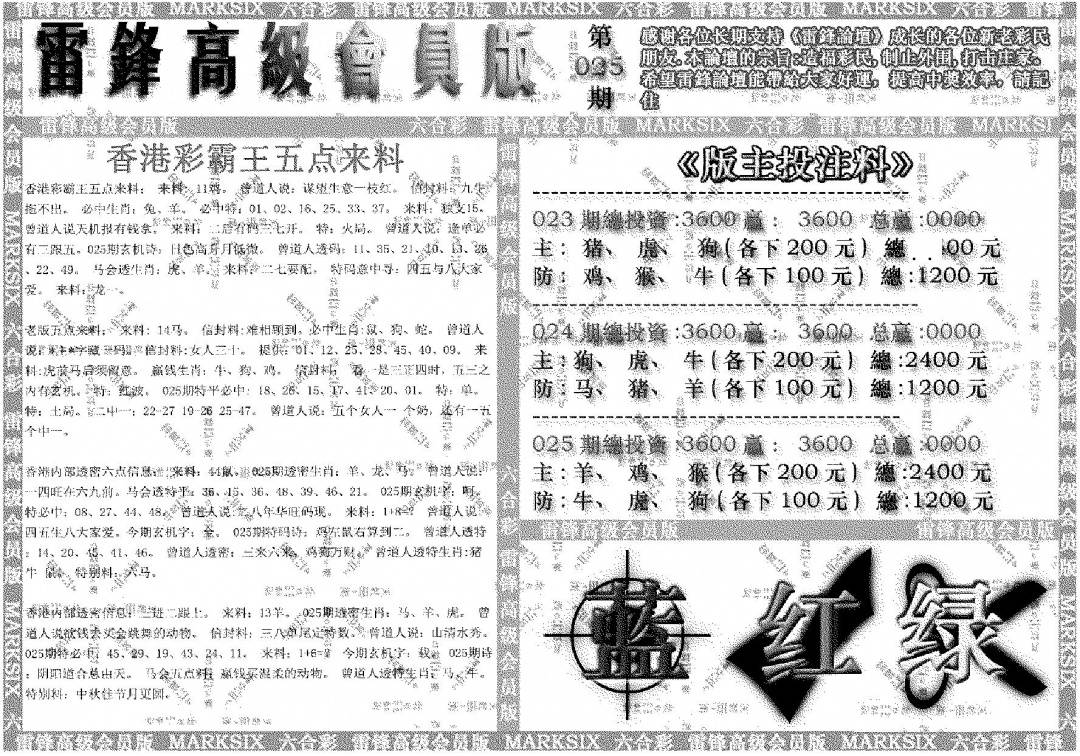 雷鋒高級會員版
第025期
感谢各位长期支持《雷鋒論壇》成长的各位新老彩民
朋友.本論壇的宗旨:造福彩民,制止外围,打击庄家。
希望雷鋒論壇能帶給大家好運，提高中獎效率，請記
住
雷锋高级会员版 MARKSIX 六合彩
香港彩霸王五点来料
香港彩霸王五点来料： 来料：11鸡。 曾道人说：谋望生意一枝红。 信封料：九牛
拖不出。 必中生肖：兔、羊。 必中特：01、02、16、25、33、37。 来料：独支15。
曾道人说天机报有钱拿。 来料：二唐有码三七开。 特：火局。 曾道人说：逢单必
有三跟五。025期玄机诗：日色高升月低微。 曾道人透码：11、35、21、40、13、26
、22、49。 马会透生肖：虎、羊。 来料：二七要配。 特码意中寻：四五与八大家
爱。 来料：龙一。
老版五点来料： 来料：14马。 信封料：难相顾到。必中生肖：鼠、狗、蛇。 曾道人
信封料:女人三十。 提供：01、12、25、28、45、40、09。 来
料:虎前马后须留意。 赢钱生肖：牛、狗、鸡。 信封料： 看一是三正四时，五三之
内有玄机。 特：红波。 025期特平必中：18、26、15、17、41、20、01。 特：单。
特：土局。 二中一：22-27 19-26 25-47。 曾道人说：五个女人一个奶，还有一五
个中一。
香港内部透密六点信息： 来料：44鼠。 025期透密生肖：羊、龙、马。 曾道人说：
一四旺在六九前。马会透特平：36、15、36、48、39、46、21。 025期玄机字：呵。
特必中：08、27、44、48。 曾道人说:二八年华旺码现。 来料：1+8=? 曾道人说：
四五生八大家爱。今期玄机字：奎。 025期特码诗：鸡在鼠右算到二。 曾道人透特
：14、20、45、41、46。 曾道人透密：三来六来，鸡狗万财。 曾道人透特生肖:猪
牛 鼠。 特别料：六马。
香港内部透密信息：二进二跟上。 来料：13羊。 025期透密生肖：马、羊、虎。 曾
道人说欲钱去买会跳舞的动物。 信封料：三八单尾定特数。 曾道人说：山清水秀。
025期特必中：45、29、19、43、24、11。 来料：1+6=? 今期玄机字：载。 025期诗
：阴阳道合总由天。 马会五点料：赢钱买温柔的动物。 曾道人透特生肖：马、牛。
特别料：中秋佳节月更圆。
《版主投注料》
023 期總投資:3600 赢： 3600 总赢:0000
主：猪、 虎、 狗(各下 200 元) 總 00 元
防：鸡、 猴、 牛(各下 100 元) 總:1200 元
024 期總投資:3600 赢： 3600 总赢:0000
主：狗、 虎、 牛(各下 200 元) 總:2400 元
防：马、 猪、 羊(各下 100 元) 總:1200 元
025 期總投資:3600 赢： 3600 总赢:0000
主：羊、 鸡、 猴(各下 200 元) 總:2400 元
防：牛、 虎、 狗(各下 100 元) 總:1200 元
雷锋高级会员版 雷锋高级会员版
藍 红 绿
雷锋高级会员版 MARKSIX 六合彩